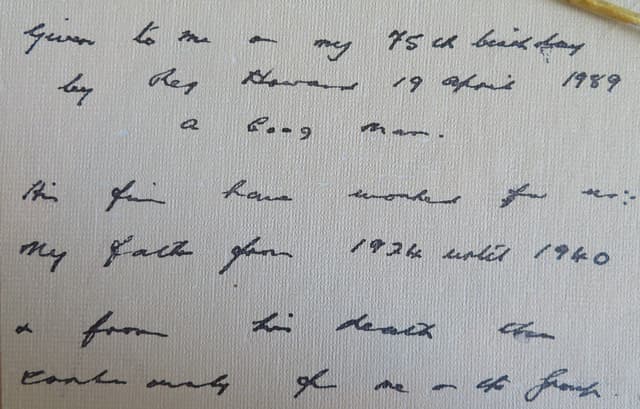 Given to me on my 75th birthday
by Reg Howard 19 April 1989
a good man.
His firm have worked for us:-
My Father from 1924 until 1940
& from his death then
continuously for me & the Group.